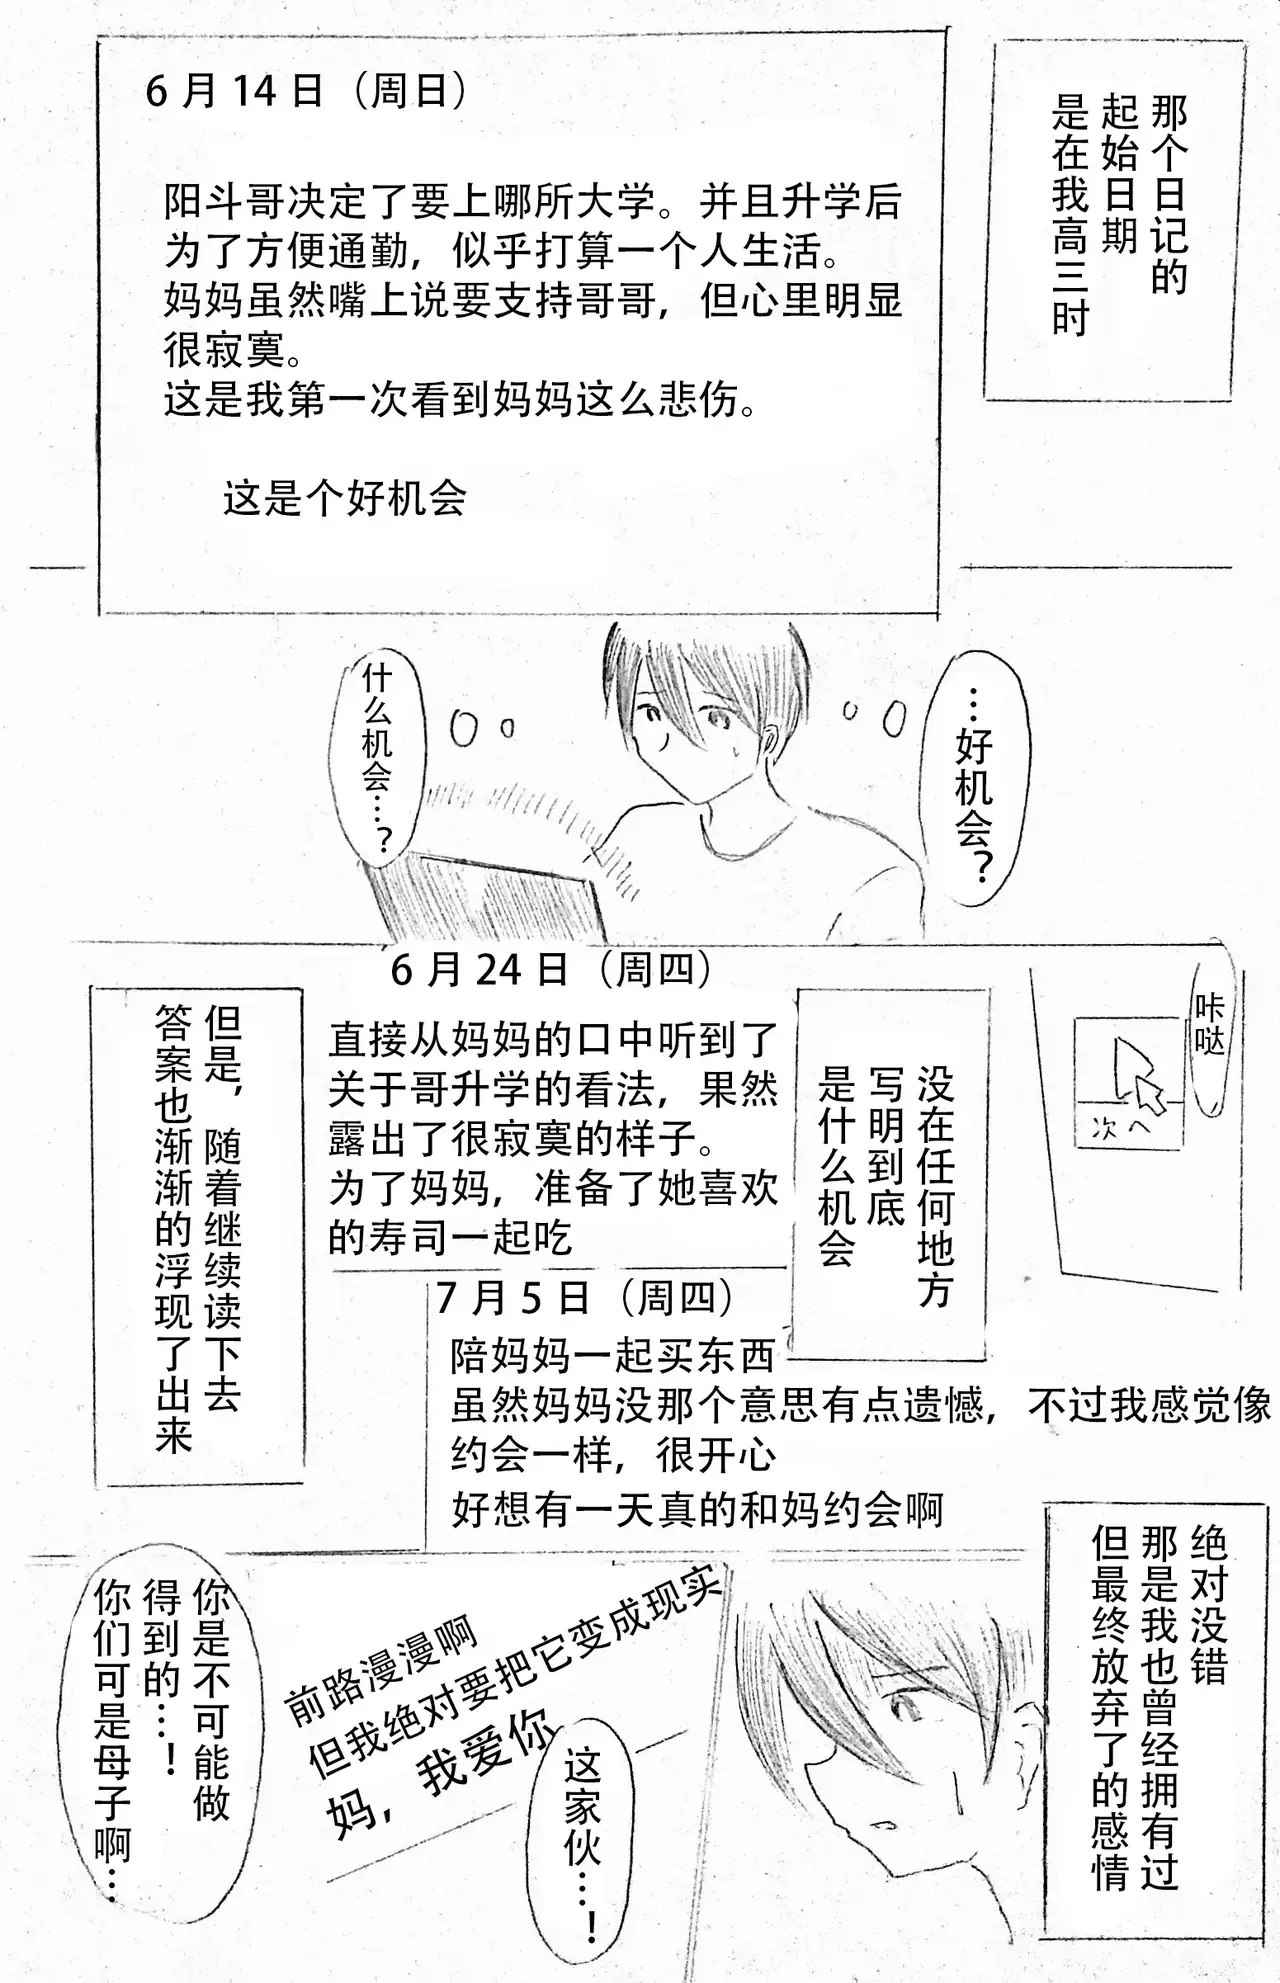 那个日记的
起始日期
是在我高三时
6月14日（周日）
阳斗哥决定了要上哪所大学。并且升学后
为了方便通勤，似乎打算一个人生活。
妈妈虽然嘴上说要支持哥哥，但心里明显
很寂寞。
这是我第一次看到妈妈这么悲伤。
这是个好机会
…好机会？
什么机会…？
咔哒
次へ
没在任何地方
写明到底
是什么机会
6月24日（周四）
直接从妈妈的口中听到了
关于哥升学的看法，果然
露出了很寂寞的样子。
为了妈妈，准备了她喜欢
的寿司一起吃
但是，随着继续读下去
答案也渐渐的浮现了出来
7月5日（周四）
陪妈妈一起买东西
虽然妈妈没那个意思有点遗憾，不过我感觉像
约会一样，很开心
好想有一天真的和妈约会啊
绝对没错
那是我也曾经拥有过
但最终放弃了的感情
前路漫漫啊
但我绝对要把它变成现实
妈，我爱你
这家伙…！
你是不可能做
得到的…！
你们可是母子啊…